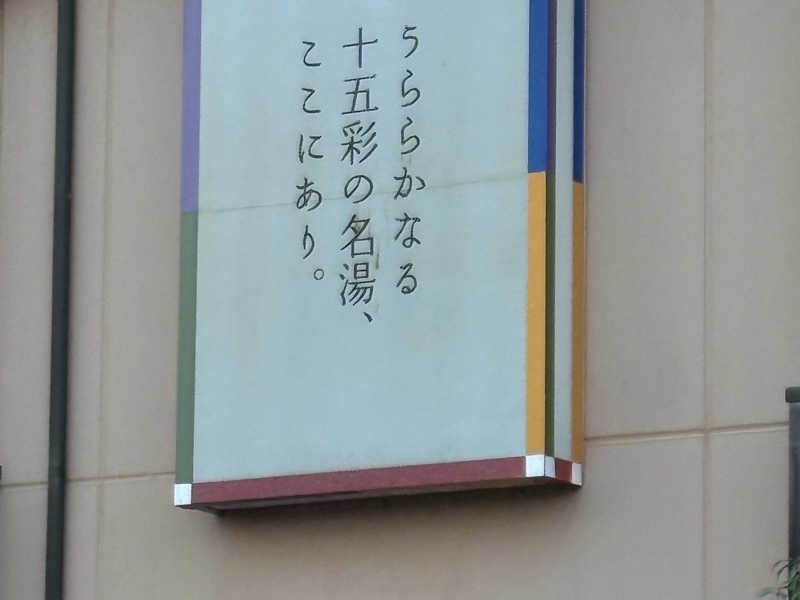 うららかなる
十五彩の名湯、
ここにあり。